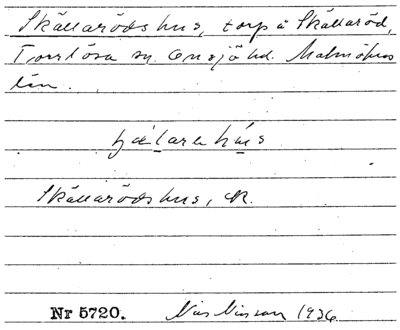 Skällarödshus, torp å Skällaröd,
Torrlösa sn. Onsjö hd. Malmöhus
län.
hus
Skällarödshus, R.
Nr 5720. Nils Nilsson 1936